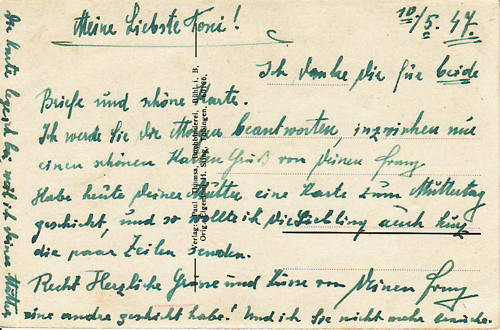 Meine Liebste Toni!
10/5. 47.
Ich danke Dir für beide
Briefe und schöne Karte.
Ich werde Sie Dir Morgen beantworten, inzwischen nur
einen schönen Karten Gruß von Deinen Franz
Habe heute Deiner Mutter eine Karte zum Muttertag
geschickt, und so wollte ich Dir Liebling auch kurz
die paar Zeilen senden.
Recht Herzliche Grüsse und Küsse von Deinen Franz
Die Karte legte ich bei weil ich Deiner Mutter
eine andre geschickt habe! Und ich Sie nicht mehr brauche.
Verlag: Paul